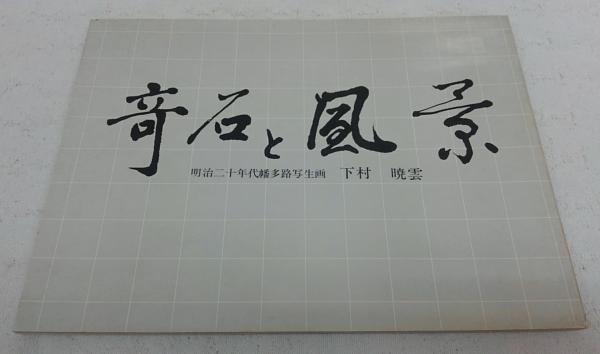 奇石と風景
明治二十年代幡多路写生画 下村 暁雲